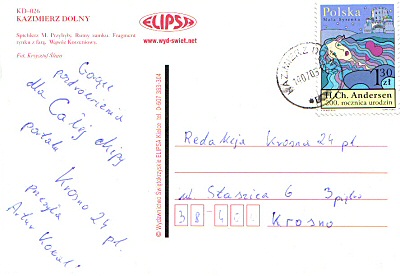 KD-026
KAZIMIERZ DOLNY
Spichlerz M. Przybyły, Baszta zamku. Fragment
rynku z farą, Wąwóz Korzeniowy.
Fot. Krzysztof
ELIPSA
www.wyd-swiet.net
Gorące
pozdrowienia
dla Całej ekipy
portalu
Krosno 24 pl.
przesyła
Artur
© Wydawnictwo Świętokrzyskie ELIPSA Kielce tel. 0-607 383-304
KAZIMIERZ DO
Polska
Mała Syrenka
1,30
zł
H. Ch. Andersen
200. rocznica urodzin
Redakcja Krosno 24 pl.
ul Staszica 6 3 piętro
38-4
Krosno